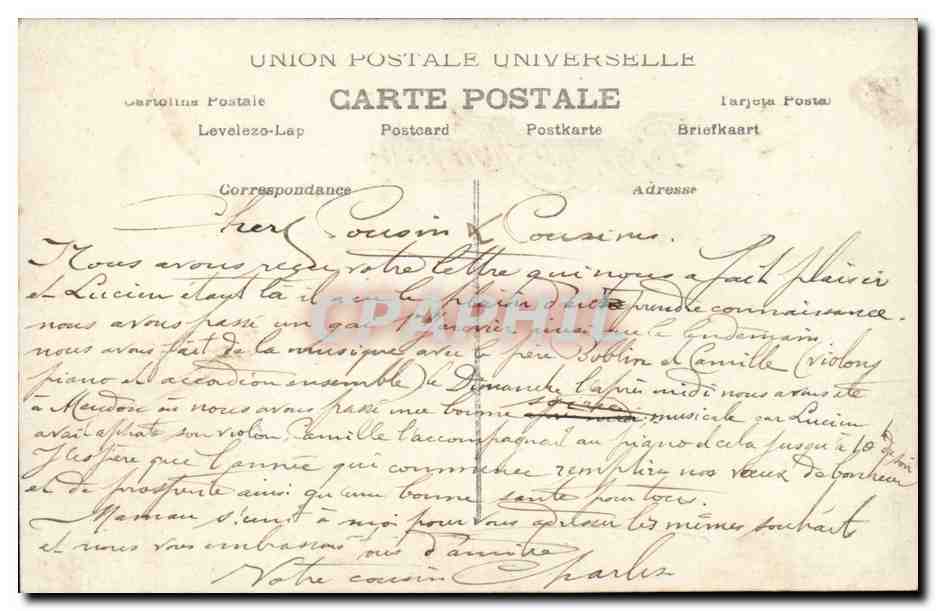 UNION POSTALE UNIVERSELLE
CARTE POSTALE
Cartolina Postale Tarjeta Postal
Levelezo-Lap Postcard Postkarte Briefkaart
Correspondance Adresse
Chers Cousin & Cousines.
Nous avons reçu votre lettre qui nous a fait plaisir
et Lucien étant là il a eu le plaisir d'en prendre connaissance.
nous avons passé un gai 1er Janvier ainsi que le lendemain
nous avons fait de la musique avec le père Boblin et Camille (violons
piano et accordion ensemble) le Dimanche l'après midi nous avons été
à Meudon où nous avons passé une bonne soirée musicale car Lucien
avait apporté son violon, Camille l'accompagnait au piano et cela jusqu'à 10h du soir
J'espère que l'année qui commence remplira nos vœux de bonheur
et de prosperité ainsi qu'une bonne santé pour tous.
Maman s'unit à moi pour vous adresser les mêmes souhait
et nous vous embrassons tous d'amitié
Votre cousin Charles
CPAPHIL